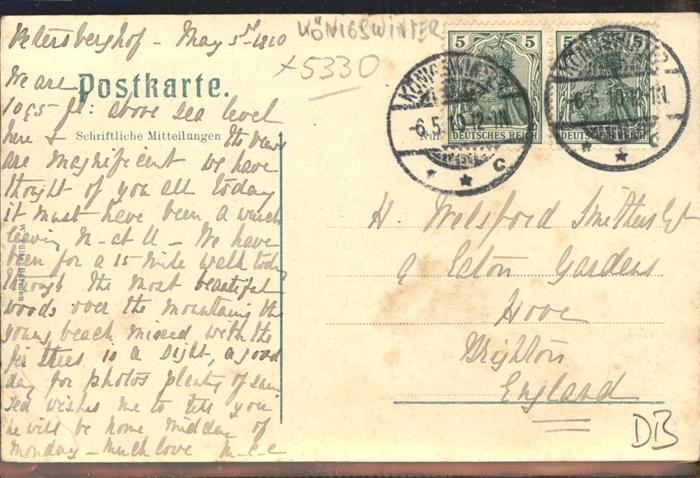 Petersberghof - May 5th 1910
KÖNIGSWINTER
+5330
5 5
DEUTSCHES REICH DEUTSCHES REICH
KÖNIGSWINTER
6.5.10.12-1N.
* * c
KÖNIGSWINTER
6.5.10.12-1N.
* * c
Postkarte.
Schriftliche Mitteilungen
We are
1095 ft: above sea level
here & the views
are magnificent we have
thought of you all today
it must have been a wrench
leaving N- at U - We have
been for a 15 mile walk today
through the most beautiful
woods over the mountains the
young beach mixed with the
fir trees is a sight, a good
day for photos plenty of sun
wishes me to tell you
he will be home midday of
Monday - much love M-C-C
H. Welsford Smithers Esq
9 Eaton Gardens
Hove
Brighton
England
DB